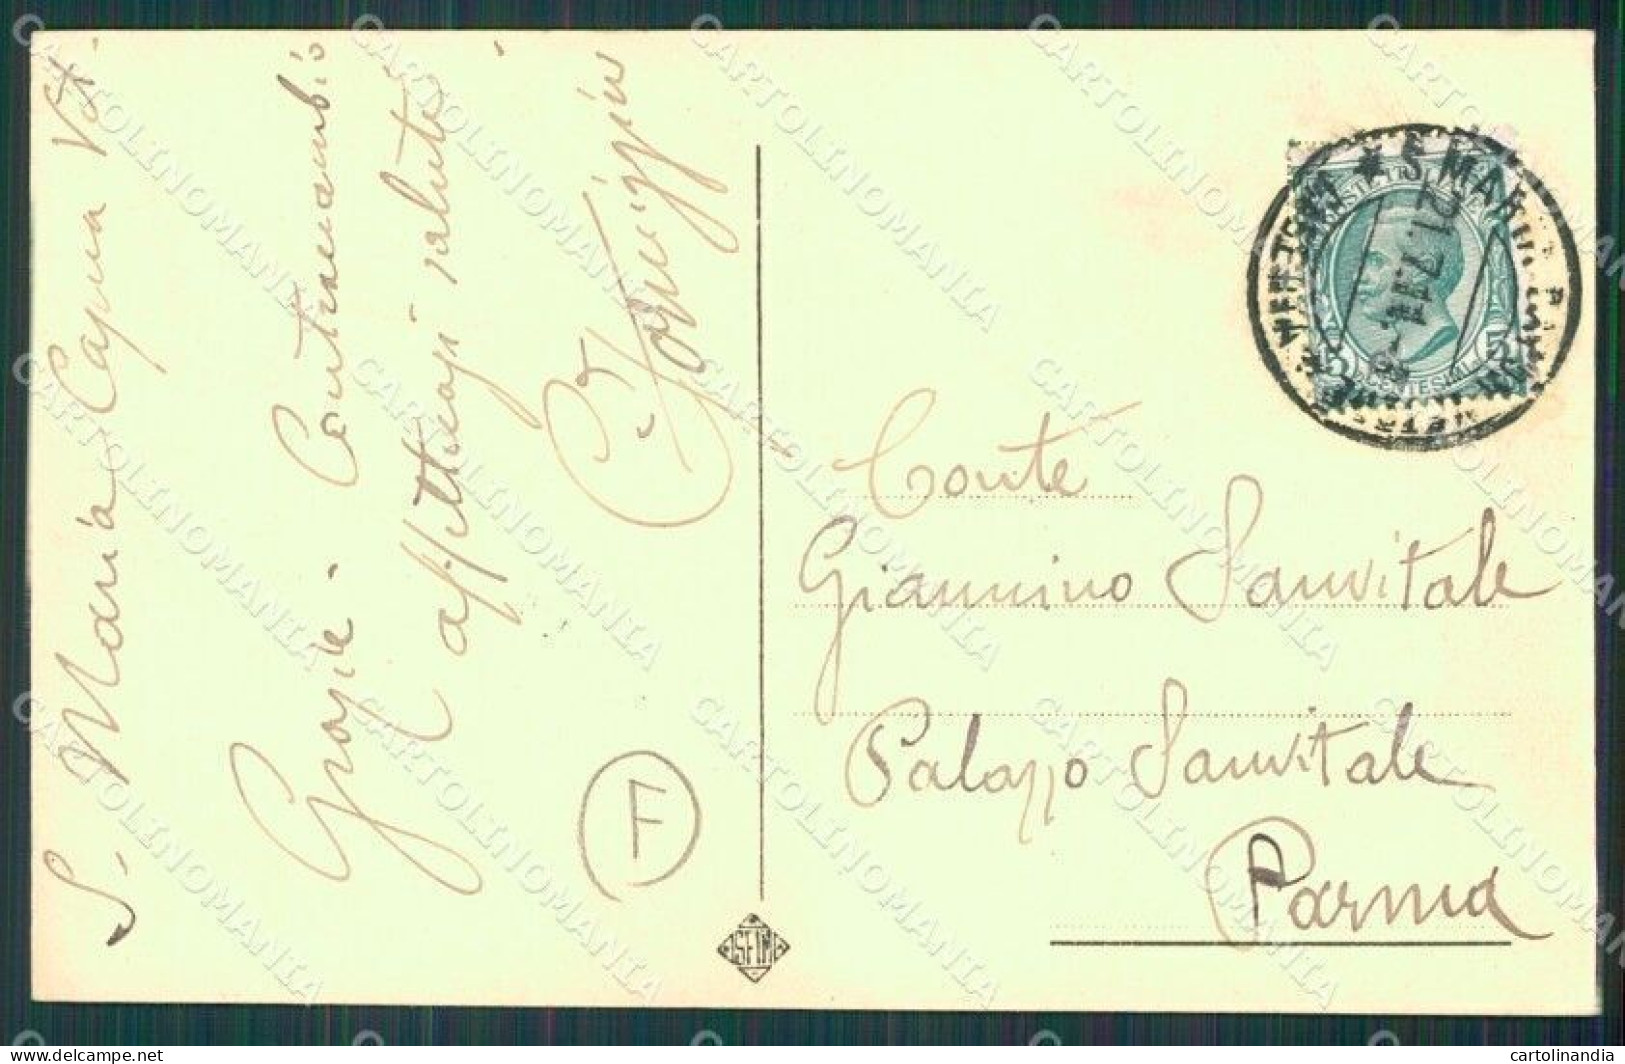 S. Maria Capua Vt.
Grazie - Contraccambio
affettuosi saluti -
F
Conte
Giannino Sanvitale
Palazzo Sanvitale
Parma
21.7.11
5 CENTESIMI 5
CARTOLINOMANIA
delcampe.net
cartolinandia